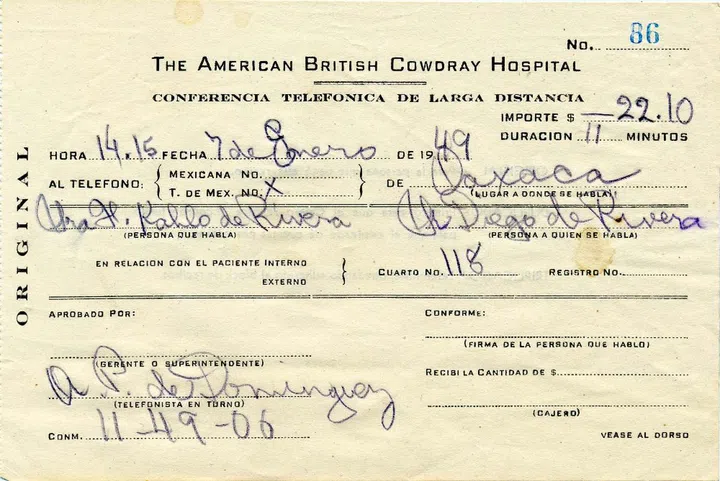 No. 86
THE AMERICAN BRITISH COWDRAY HOSPITAL
CONFERENCIA TELEFONICA DE LARGA DISTANCIA
IMPORTE $ —22.10
DURACION 11 MINUTOS
HORA 14.15 FECHA 7 de Enero DE 1949
AL TELEFONO: { MEXICANA No.
T. DE MEX. No. X } DE Oaxaca
(LUGAR A DONDE SE HABLA)
Sra F. Kahlo de Rivera Sr Diego de Rivera
(PERSONA QUE HABLA) (PERSONA A QUIEN SE HABLA)
EN RELACION CON EL PACIENTE INTERNO
EXTERNO } CUARTO No. 118 REGISTRO No.
ORIGINAL
APROBADO POR: CONFORME:
(GERENTE O SUPERINTENDENTE) (FIRMA DE LA PERSONA QUE HABLO)
RECIBI LA CANTIDAD DE $
A P. de Dominguez
(TELEFONISTA EN TURNO) (CAJERO)
CONM. 11-49-06 VEASE AL DORSO